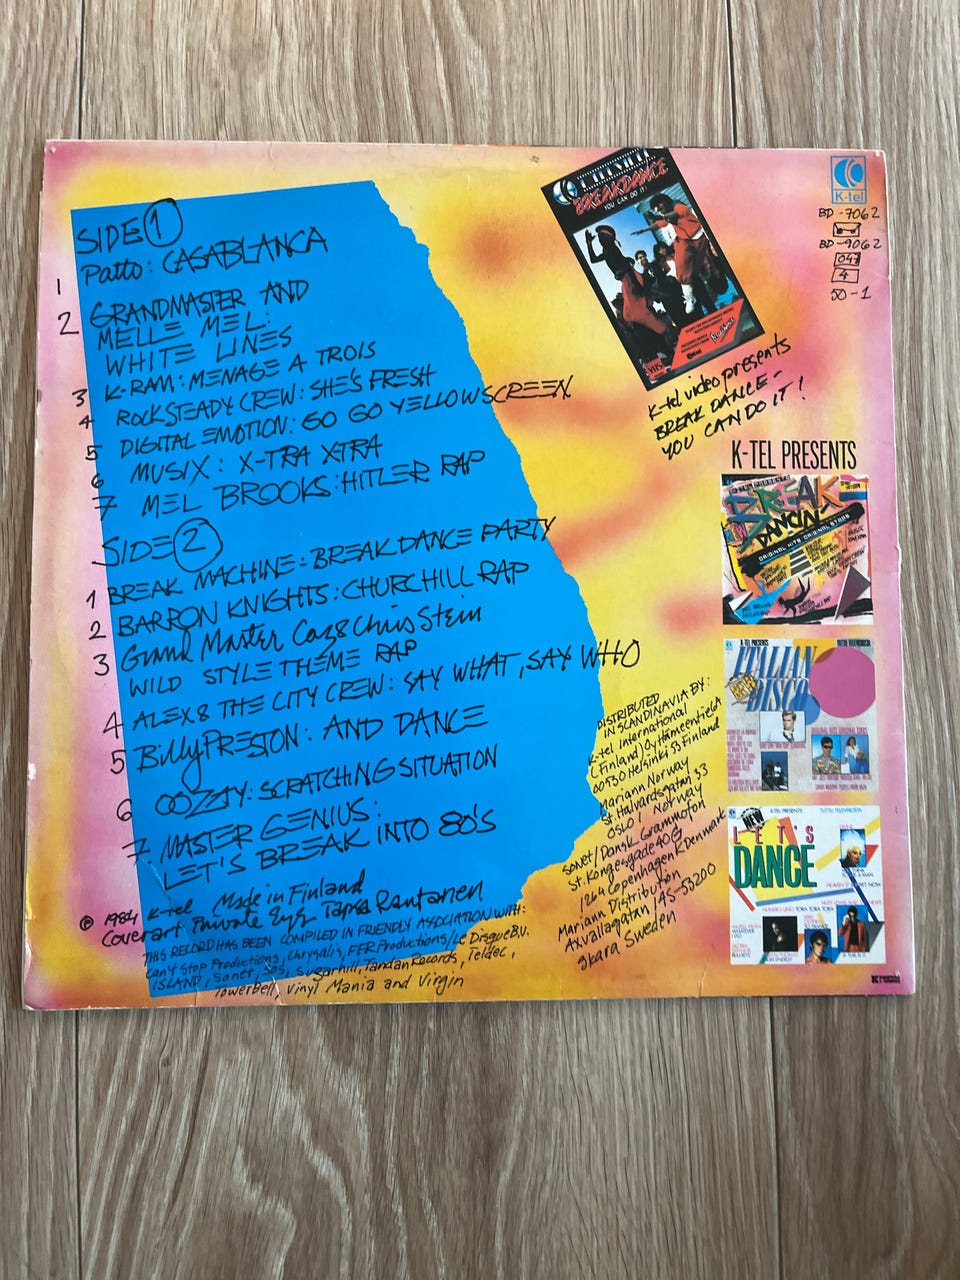 SIDE 1
1 Patto: CASABLANCA
2 GRANDMASTER AND
MELLE MEL:
WHITE LINES
3 K-RAM: MENAGE A TROIS
4 ROCKSTEADY CREW: SHE'S FRESH
5 DIGITAL EMOTION: GO GO YELLOW SCREEN
6 MUSIX: X-TRA XTRA
7 MEL BROOKS: HITLER RAP
SIDE 2
1 BREAK MACHINE: BREAK DANCE PARTY
2 BARRON KNIGHTS: CHURCHILL RAP
3 Grand Master Caz & Chris Stein
WILD STYLE THEME RAP
4 ALEX & THE CITY CREW: SAY WHAT, SAY WHO
5 Billy PRESTON: AND DANCE
6 OOZZAY: SCRATCHING SITUATION
7 MASTER GENIUS:
LET'S BREAK INTO 80'S
℗ 1984 K-tel Made in Finland
Coverart Private Eye Tapsa Rantanen
THIS RECORD HAS BEEN COMPILED IN FRIENDLY ASSOCIATION WITH:
Can't Stop Productions, Chrysalis, FFR Productions/Le Disque B.V.
ISLAND, Sonet, SOS, Sugarhill, Tandan Records, Teldec,
TowerBell, Vinyl Mania and Virgin
BREAKDANCE
YOU CAN DO IT!
VHS
K-tel video presents
BREAK DANCE -
YOU CAN DO IT!
K-tel
BD-7062
BD-9062
04
4
50-1
K-TEL PRESENTS
BREAK
DANCIN'
ORIGINAL HITS ORIGINAL STARS
K-TEL PRESENTS
ITALIAN
DISCO
K-TEL PRESENTS
NEW
LET'S
DANCE
DISTRIBUTED
IN SCANDINAVIA BY:
K-tel International
(Finland) Oy Hämeentie 6A
00530 Helsinki 53 Finland
Mariann Norway
St. Halvardsgatan 33
OSLO 1 Norway
Sonet/Dansk Grammofon
St. Kongesgade 40 G
1264 Copenhagen K Denmark
Mariann Distribution
Axvallagatan 1A S-53200
Skara Sweden